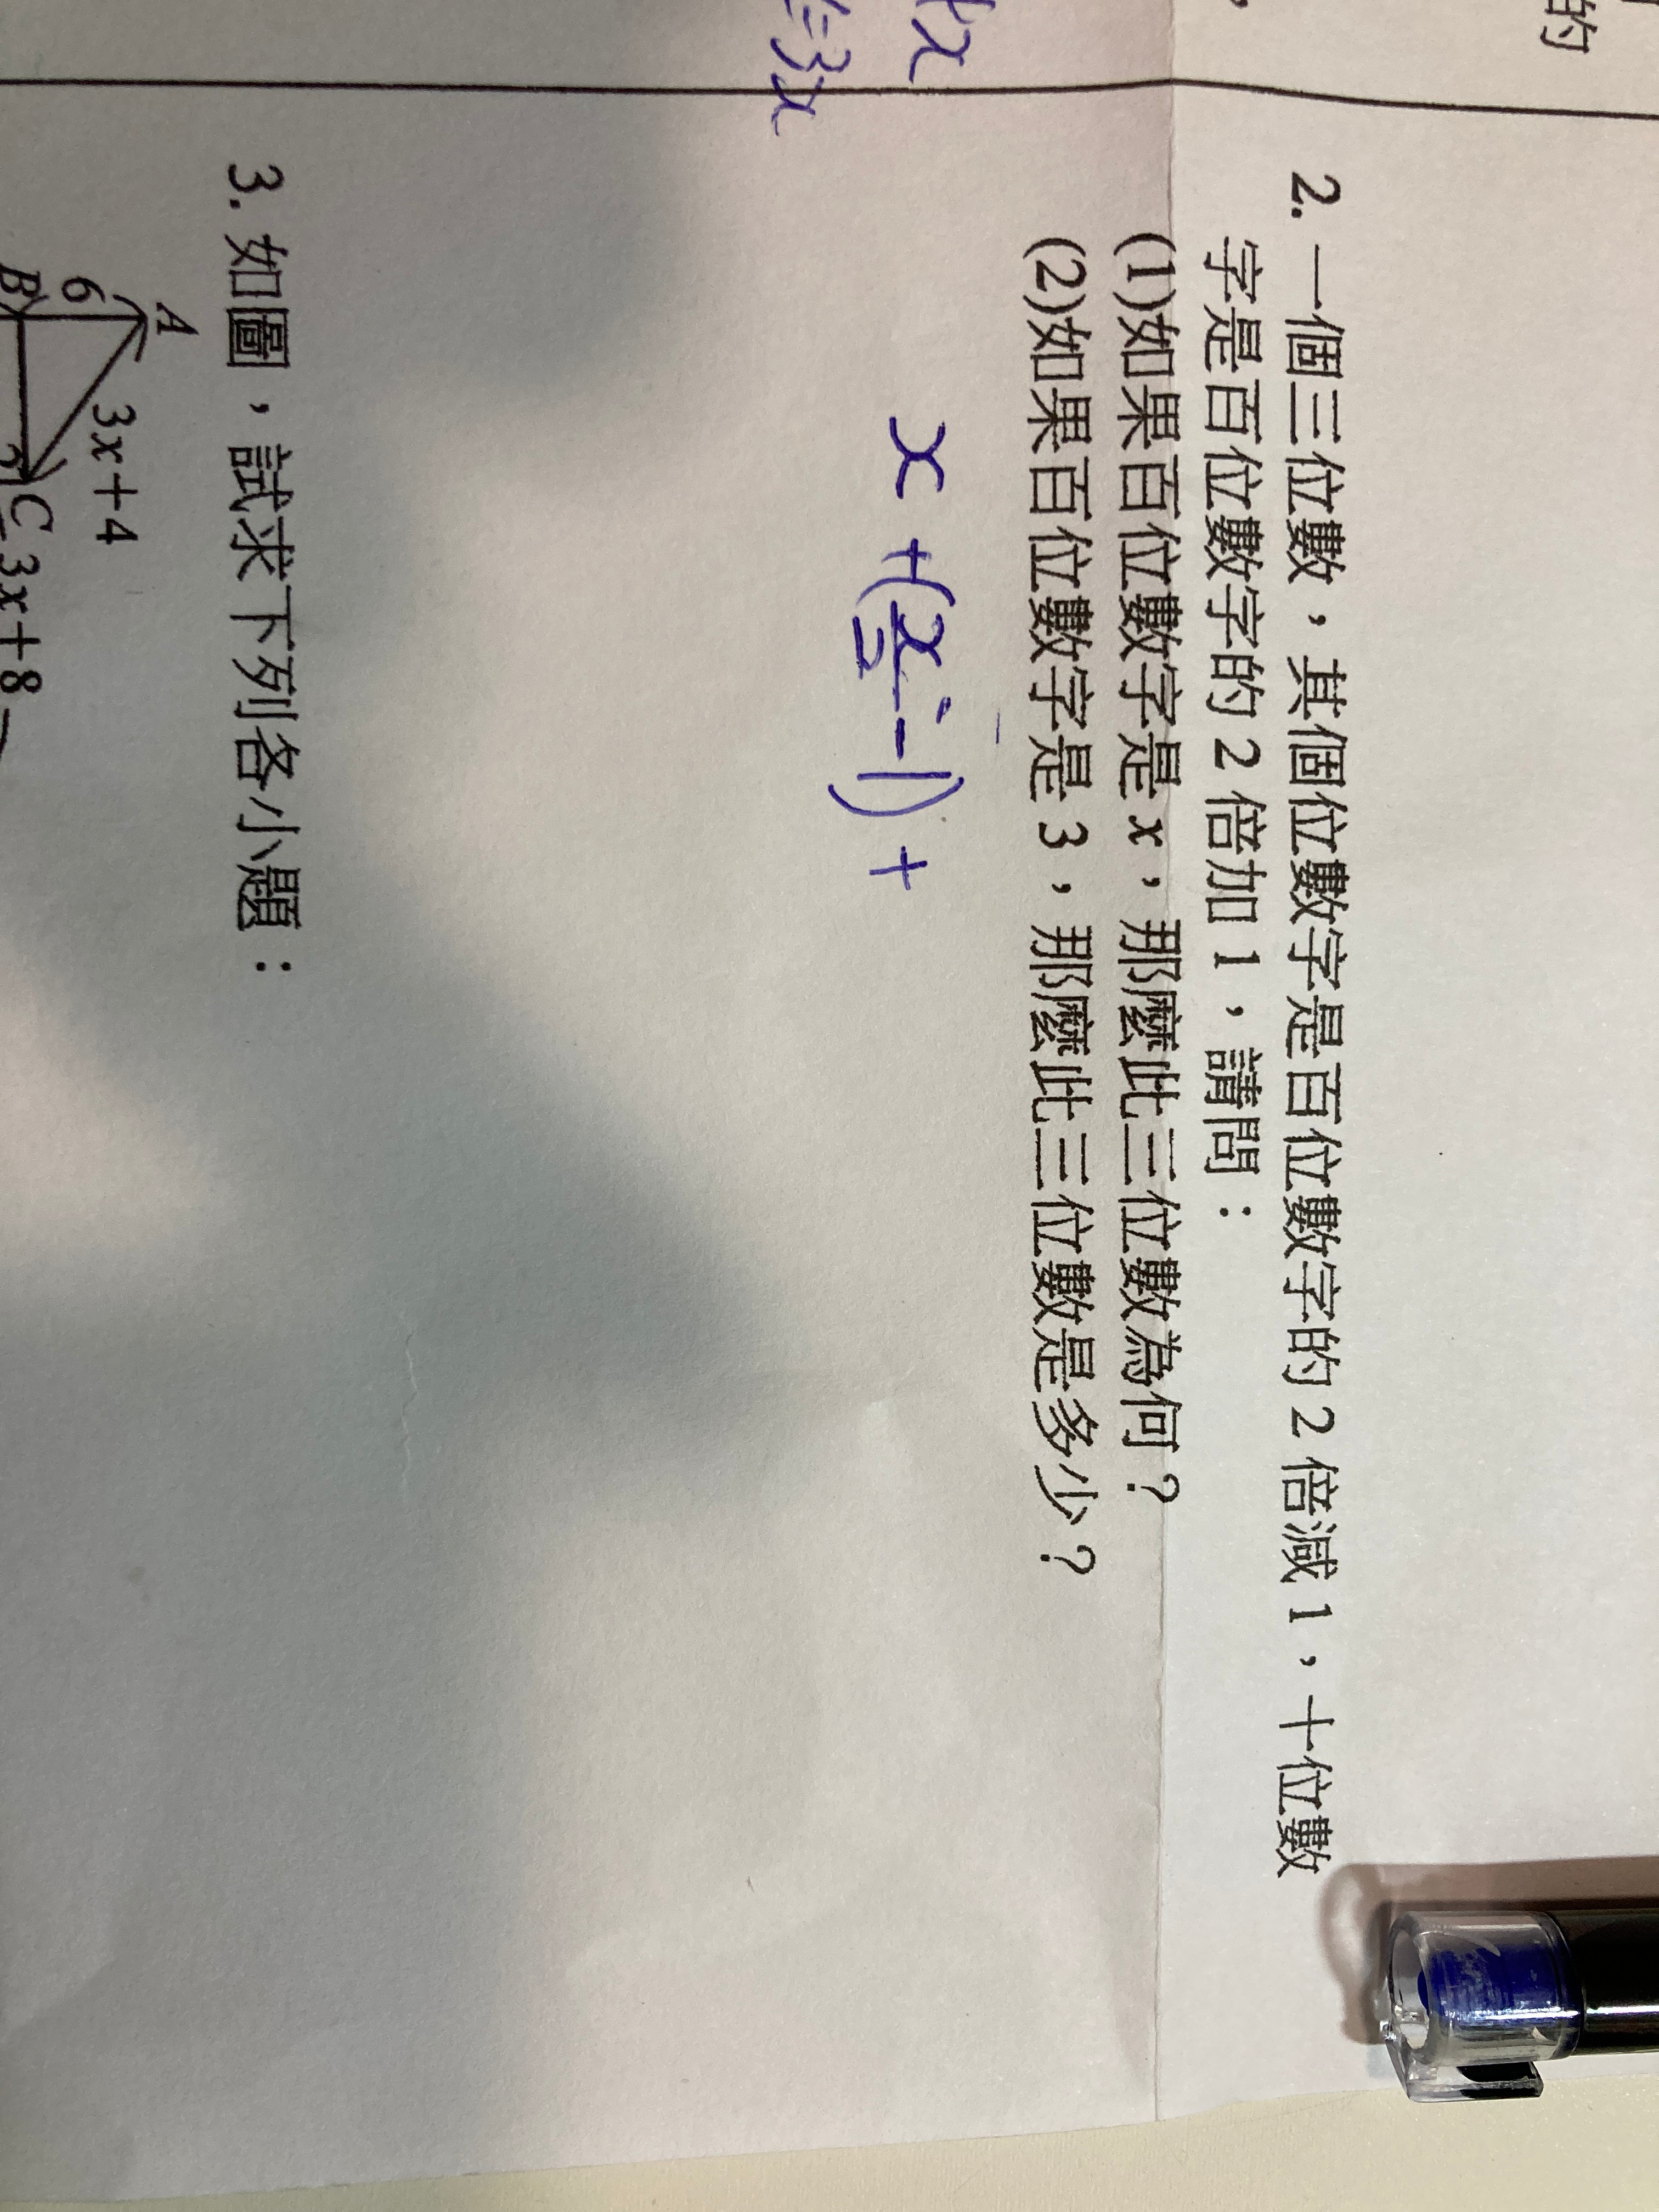 的
2. 一個三位數，其個位數字是百位數字的 2 倍減 1，十位數
字是百位數字的 2 倍加 1，請問：
(1)如果百位數字是 x，那麼此三位數為何？
(2)如果百位數字是 3，那麼此三位數是多少？
x
=3x
x +(x/2 -1) +
3. 如圖，試求下列各小題：
A
3x＋4
6
B
C
3x＋8